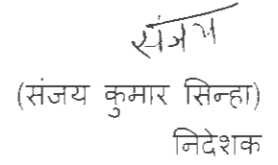 संजय
(संजय कुमार सिन्हा)
निदेशक